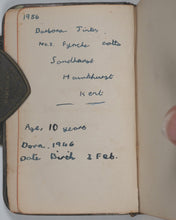 1956
Barbara
No.2 Fynche Cotts
Sandhurst
Hawkhurst
Kent
Age, 10 years
Born. 1946
Date Birth 2 Feb.